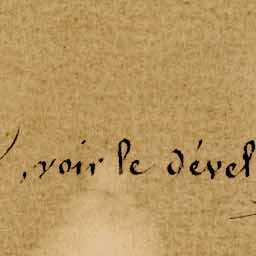 ), voir le dével